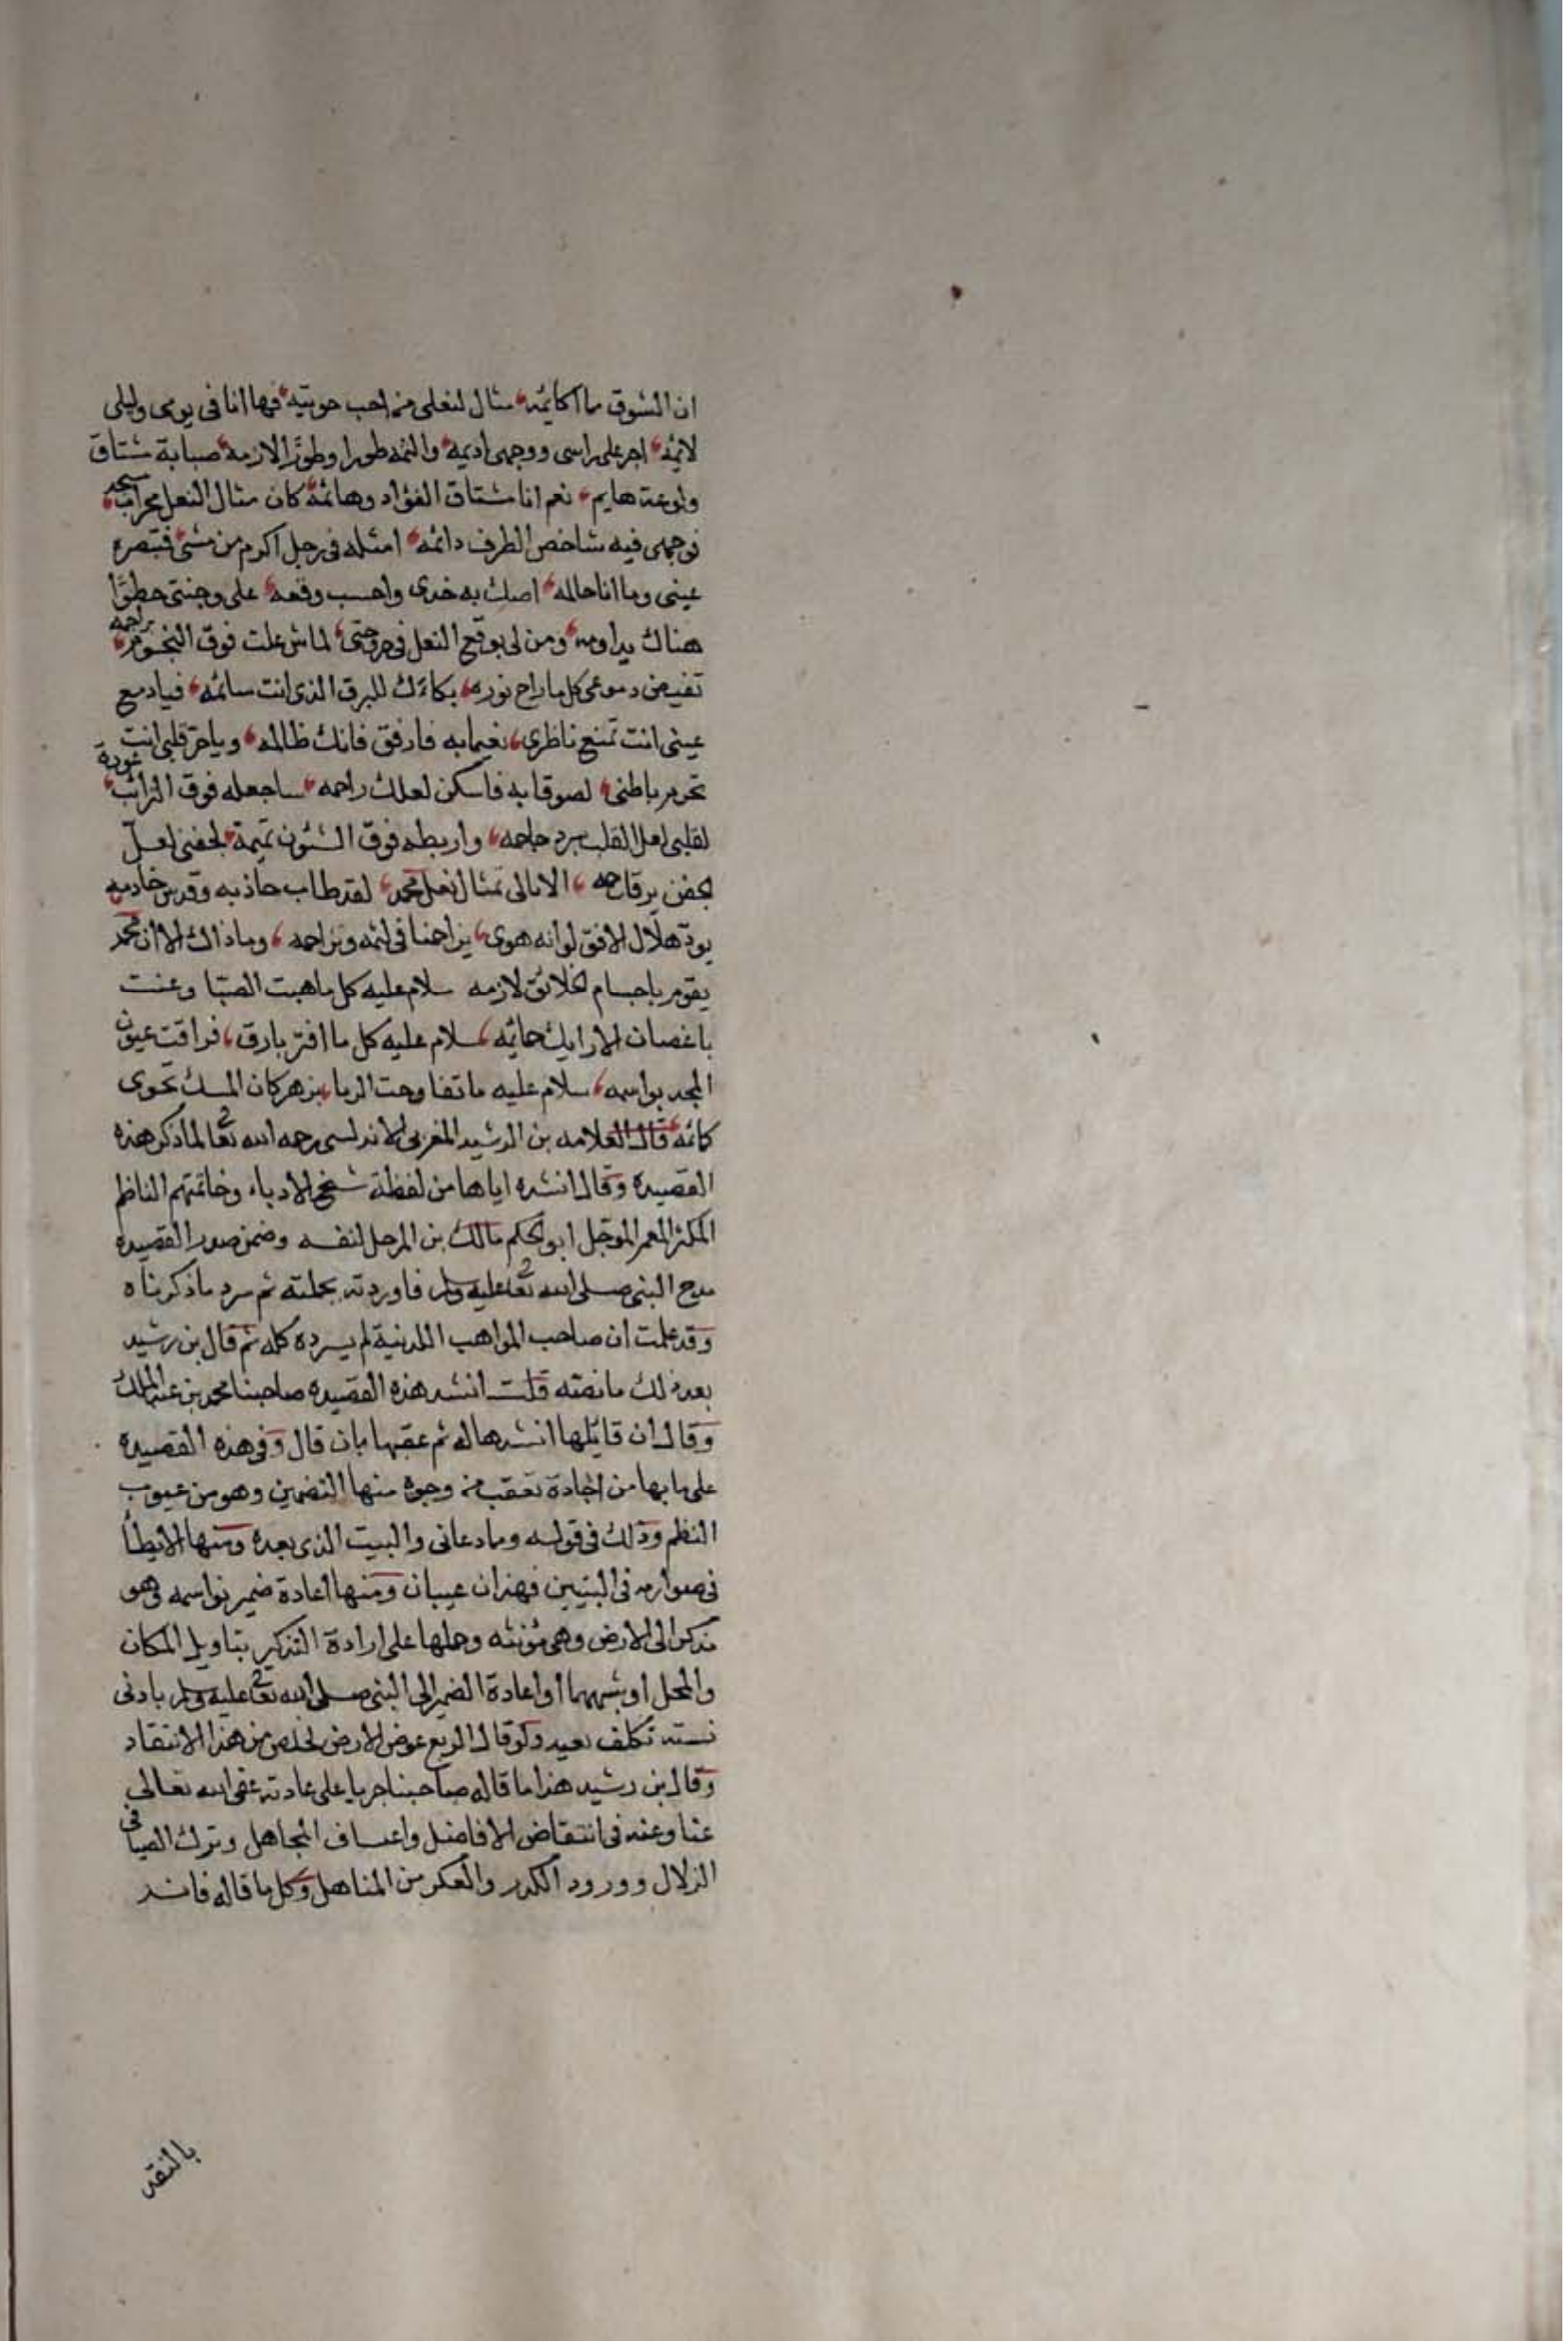 ان الشوق ما اكاتمه مثال لنعلى من احب حويته فها انا فى يومى وليلى
لاثمه اجر على راسى ووجهى اديمه والثمه طورا وطورًا الازمه صبابة مشتاق
ولوعة هايم نعم انا مشتاق الفؤاد وهائمه كان مثال النعل محراب سجد
فوجهى فيه شاخص الطرف دائمه امثله فى رجل اكرم من مشى فتبصره
عينى وما انا حالمه اصك به خدى واحسب وقعه على وجنتى خطوًا
هناك يداومه ومن لى بوقع النعل فى حر وجنتى لماش علت فوق النجوم براجمه
تفيض دموعى كل ما راح نوره بكاءك للبرق الذى انت سائمه فيا دمع
عينى انت تمنع ناظرى نعيما به فارفق فانك ظالمه ويا حر قلبى انت
تحرم باطنى لصوقا به فاسكن لعلك راحمه ساجعله فوق الترائب عوذة
لقلبى لعل القلب يبرد حاجمه واربطه فوق الشئون تميمة لجفنى لعلّ
الجفن يرقا جمه الا بابى تمثال نعل محمد لقد طاب حاذيه وقدس خادمه
يودّ هلال الافق لو انه هوى يزاحمنا فى لثمه ونزاحمه وما ذاك الا ان محمد
يقوم باجسام الخلائق لازمه سلام عليه كل ما هبت الصبا وغنت
باغصان الاراك حمائمه سلام عليه كل ما افتر بارق فراقت عيون
المجد بواسمه سلام عليه ما تفاوحت الربا بزهر كان المسك تحوى
كمائمه قال العلامه بن الرشيد المغربى الاندلسى رحمه الله تعالى لما ذكر هذه
القصيده وقال انشده اياها من لفظة شيخ الادباء وخاتمتهم الناظم
المكثر المعمر الموجل ابو الحكم مالك بن المرحل لنفسه وضمن صدور القصيده
مدح النبى صلى الله تعالى عليه وسلم فاوردته بجملته ثم سرد ما ذكرناه
وقد علمت ان صاحب المواهب اللدنية لم يسرده كله ثم قال بن رشيد
بعد ذلك ما نصته قلت انشد هذه القصيده صاحبنا محمد بن عبد الملك
وقال ان قايلها انشدها له ثم عقبها بان قال وفى هذه القصيده
على ما بها من اجادة تعقب من وجوه منها التضمين وهو من عيوب
النظم وذلك فى قوله وما دعانى والبيت الذى بعده ومنها الايطأ
فى صوارمه فى البيتين فهذان عيبان ومنها اعادة ضمير نواسمه وهو
مذكر الى الارض وهى مؤنثه وحملها على ارادة التذكير بتاويل المكان
والمحل او شبههما او اعادة الضمير الى النبى صلى الله تعالى عليه وسلم بادنى
نسبته تكلف بعيد ولو قال الربع عوض الارض لخلص من هذا الانتقاد
وقال بن رشيد هذا ما قاله صاحبنا جريا على عادته عفى الله تعالى
عنا وعنه فى انتقاض الافاضل واعساف المجاهل وترك الصافى
الزلال وورود الكدر والعكر من المناهل وكل ما قاله فاند
بالنقد